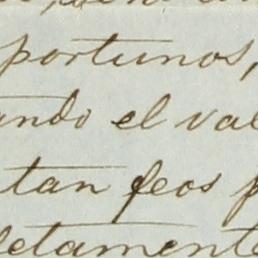 portunos,
ando el val
tan feos p
letamente